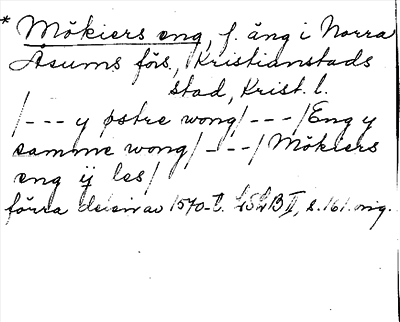 * Mökiers eng, f. äng i Norra
Åsums förs, Kristianstads
stad, Krist. l.
/--- y østre wong/---/Eng y
samme wong/---/Mökiers
eng ij les/
förra delen av 1570-t. LSLB II, s. 161. orig.